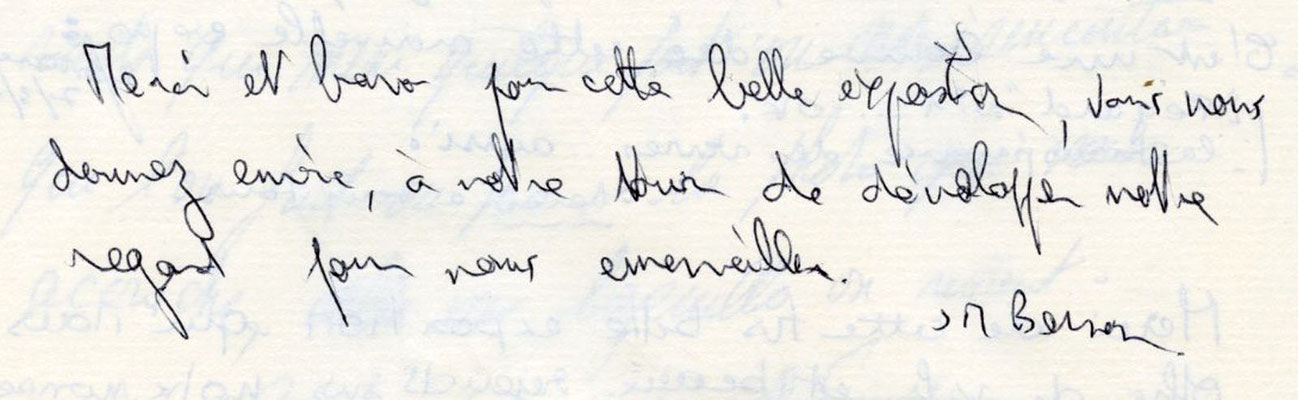 Merci et bravo pour cette belle exposition, vous nous
donnez envie, à notre tour de développer notre
regard pour nous émerveiller.
JM